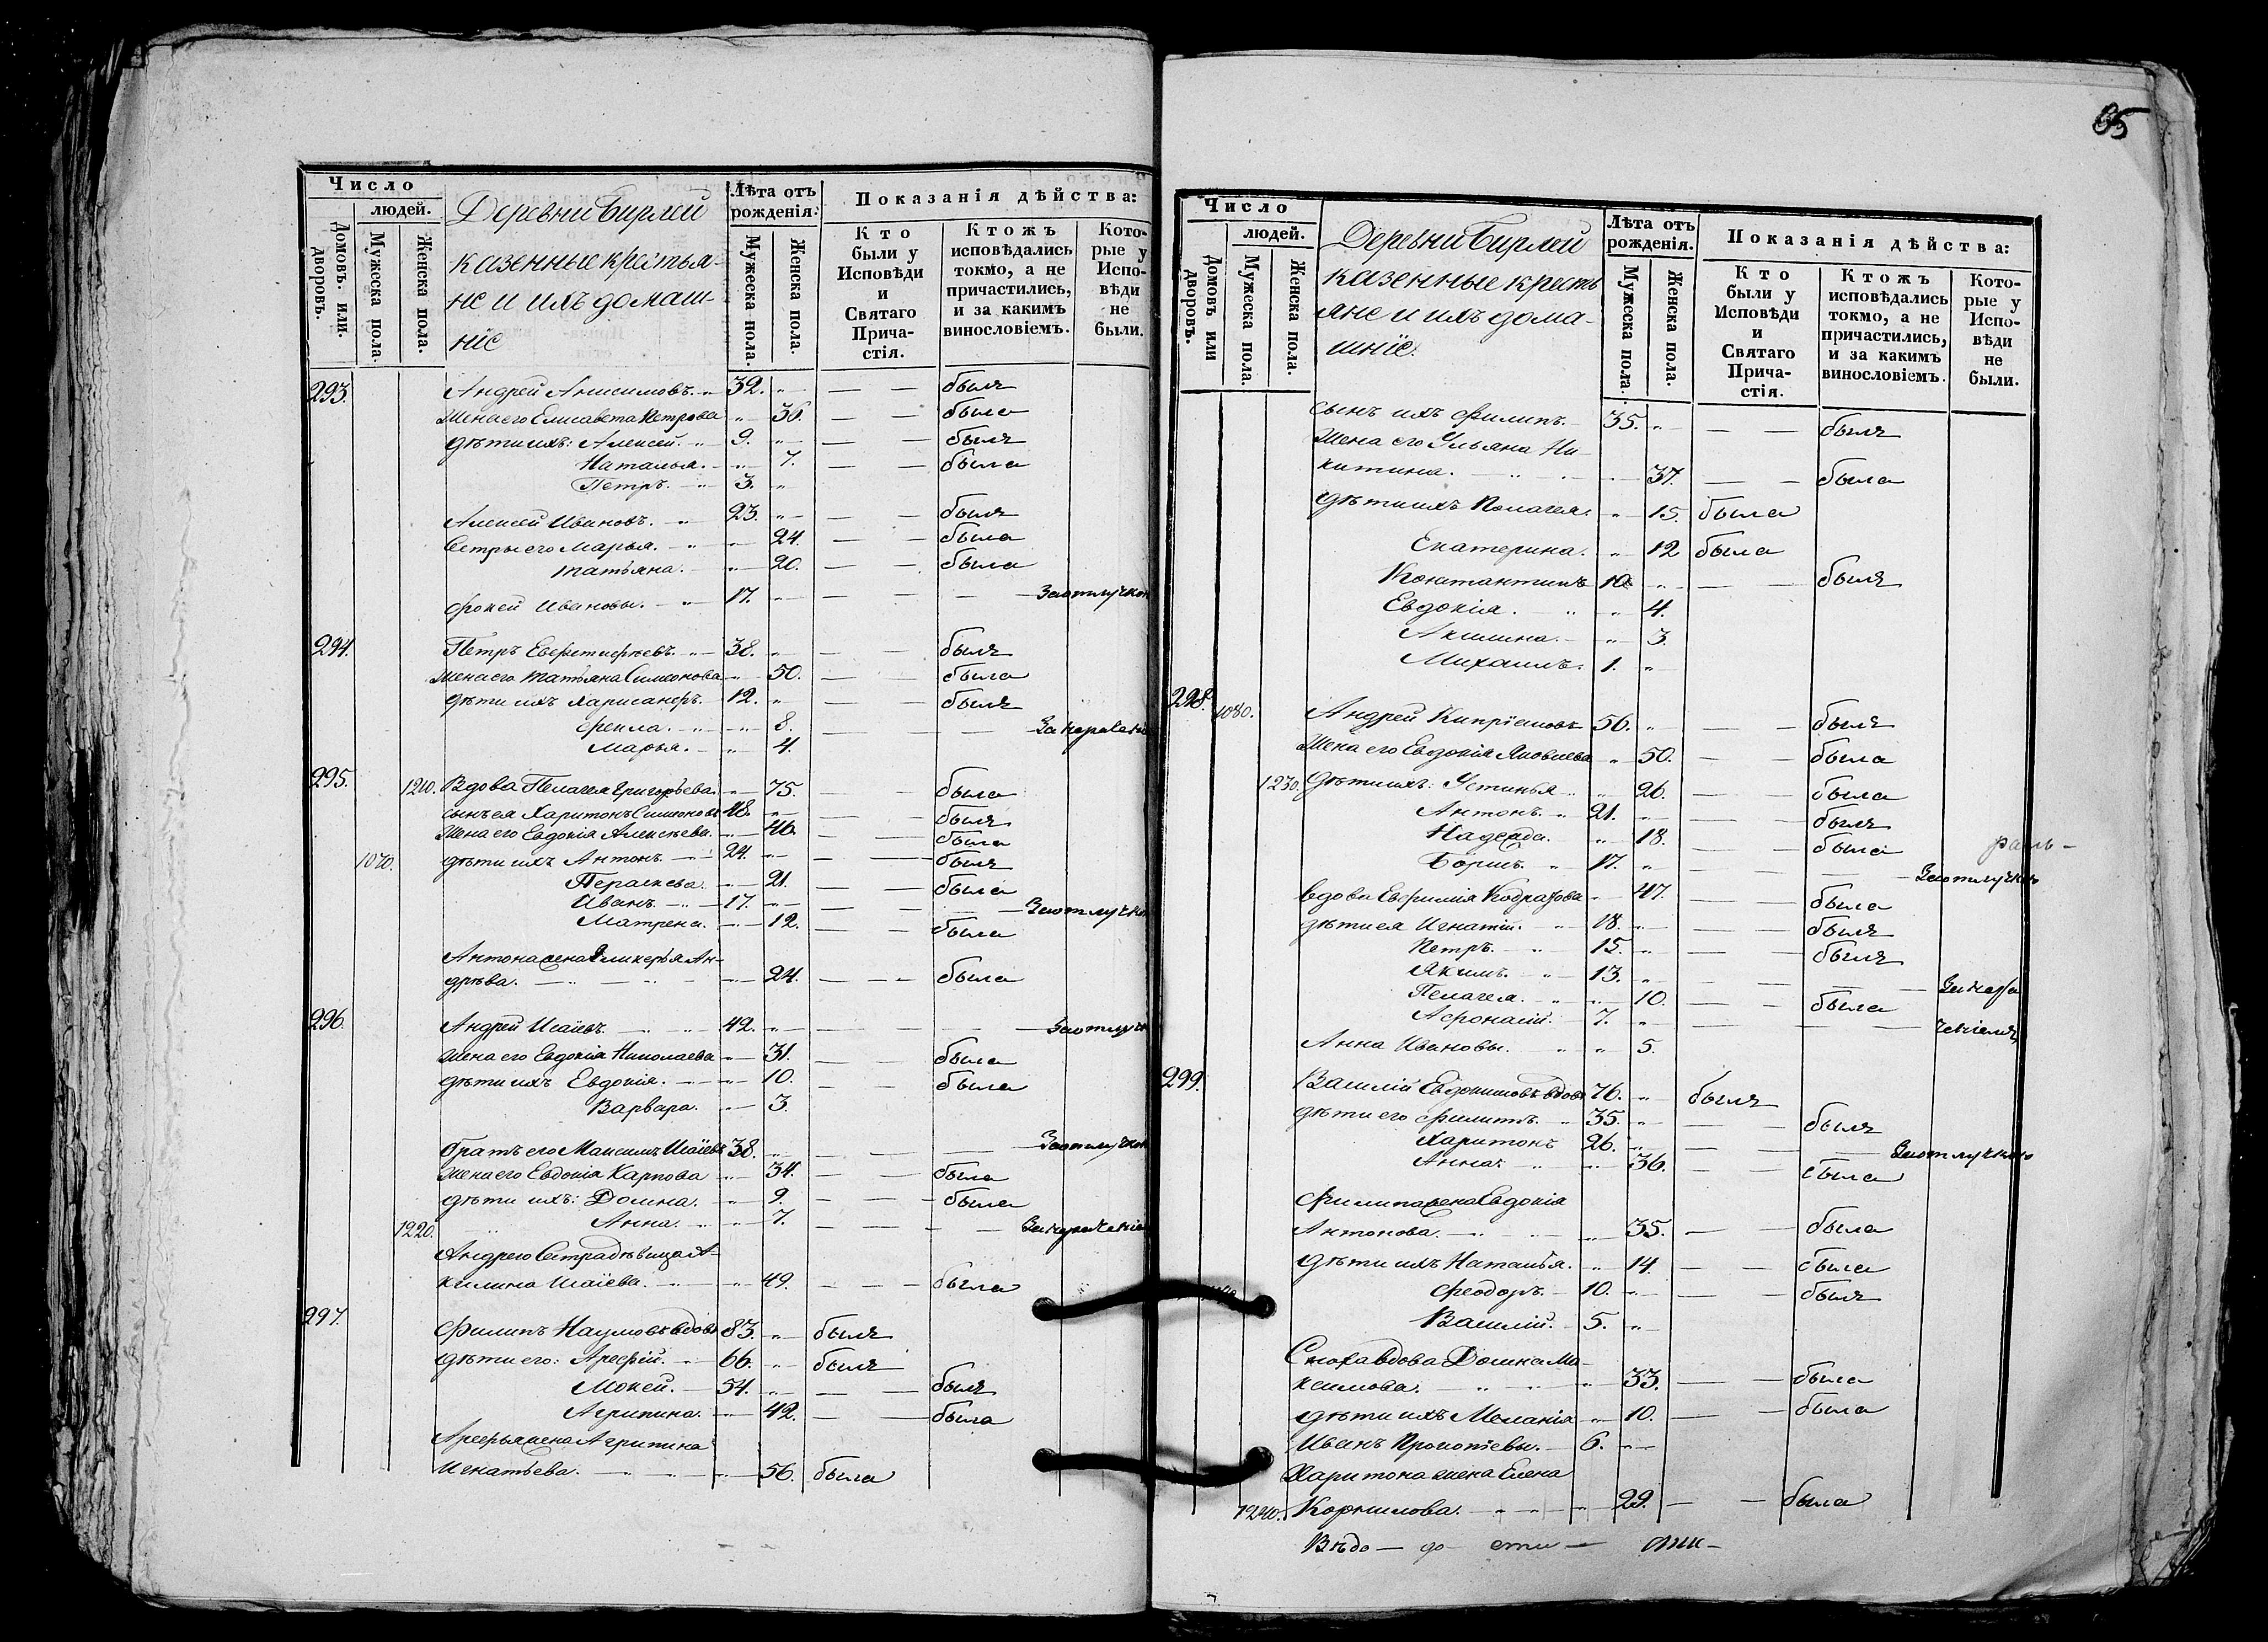 Число
людей.
Домовъ. или. дворовъ.
Мужеска пола.
Женска пола.
Деревни Бирлей
казенные крестья-
не и ихъ домаш-
нiе
Лѣта отъ рожденiя.
Мужеска пола.
Женска пола.
Показанiя дѣйства:
Кто были у Исповѣди и Святаго Прича-стiя.
Ктожъ исповѣдались токмо, а не причастились, и за какимъ винословiемъ.
Кото-рые у Испо-вѣди не были.
293. Андрей Анисимовъ. 32. былъ
Жена его Елисавета Петрова 36. была
дѣти ихъ: Алексей. 9. былъ
Наталья. 7. была
Петръ. 3.
Алексей Ивановъ. 23. былъ
Сестры его Марья. 24. была
Татьяна. 20. была
Фокей Ивановы. 17. За отлучкою
294. Петръ 38. былъ
Жена его Татьяна Симеонова 50. была
дѣти ихъ 12. былъ
Фекла. 8.
Марья. 4.
295. 1210. Вдова Пелагея Григорьева. 75. была
сынъ ея Харитонъ Симеоновъ 48. былъ
Жена его Евдокiя Алексѣева. 46. была
1070. дѣти ихъ Антонъ. 24. былъ
Параскева. 21. была
Иванъ. 17. За отлучкою
Матрена. 12. была
Антона жена Гликерья Ан-
дрѣва. 24. была
296. Андрей Исаiевъ. 42. За отлуч
Жена его Евдокiя Николаева 31. была
дѣти ихъ Евдокiя. 10. была
Варвара. 3.
братъ его Максимъ Исаiевъ 38. За отлучкою
Жена его Евдокiя Карпова 34. была
дѣти ихъ: Домна. 9. была
1220. Анна. 7.
Андрея Сестра дѣвица А-
килина Исаiева. 49. была
297. Филипъ Наумовъ вдовъ 83. былъ
дѣти его: Арефiй. 66. былъ
Мокей. 54. былъ
Агрипина. 42. была
Арефья жена Агрипина
Игнатьева. 56. была
85
Число
людей.
Домовъ или дворовъ.
Мужеска пола.
Женска пола.
Деревни Бирлей
казенные кресть
яне и ихъ дома-
шнiе.
Лѣта отъ рожденiя.
Мужеска пола
Женска пола.
Показанiя дѣйства:
Кто были у Исповѣди и Святаго Прича-стiя.
Ктожъ исповѣдались токмо, а не причастились, и за какимъ винословiемъ.
Кото-рые у Испо-вѣди не были.
сынъ ихъ Филипъ. 35. былъ
Жена его Ульяна Ни-
китина. 37. была
дѣти ихъ Пелагея. 15. была
Екатерина. 12 была
Константинъ 10. былъ
Евдокiя. 4.
Акилина. 3.
Михаилъ. 1.
298. 1080. Андрей Кипрiановъ 56. былъ
Жена его Евдокiя Яковлева 50. была
1230. дѣти ихъ: Устинья 26. была
Антонъ. 21. былъ
Надежда. 18. была
Борисъ. 17. За отлучкою
вдова Евфимiя 47. была
дѣти ея Игнатiй. 18. былъ
Петръ. 15. былъ
Якимъ. 13.
Пелагея. 10. была
Афонасiй. 7.
Анна Ивановы. 5.
299. Василiй Евдокимовъ вдовъ 76. былъ
дѣти его Филиппъ. 35. былъ
Харитонъ 26. За отлучкою
Анна. 36. была
Филипа жена Евдокiя
Антонова. 35. была
дѣти ихъ Наталья. 14. была
Феодоръ. 10. былъ
Василiй. 5.
Сноха вдова Домна Ма-
ксимова. 33. была
дѣти ихъ Меланiя 10. была
Иванъ Прокопiевы. 6.
Харитона жена Елена
1240. Корнилова. 29. была